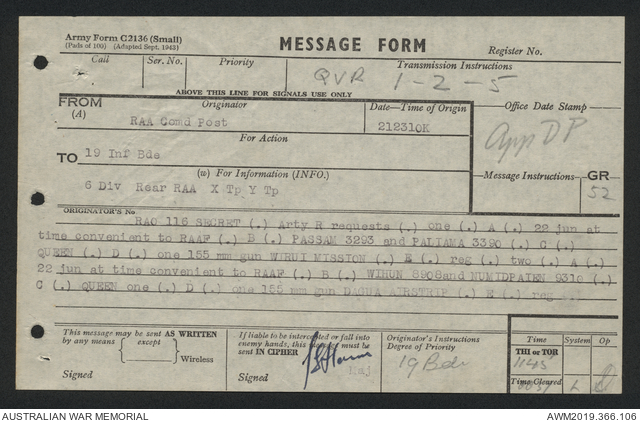 Army Form C2136 (Small)
(Pads of 100) (Adapted Sept. 1943)
MESSAGE FORM
Register No.
Call Ser. No. Priority Transmission Instructions
QVR 1-2-5
ABOVE THIS LINE FOR SIGNALS USE ONLY
FROM Originator Date—Time of Origin Office Date Stamp
(A) RAA Comd Post 212310K
App DP
For Action
TO 19 Inf Bde
(w) For Information (INFO.) Message Instructions GR
6 Div Rear RAA X Tp Y Tp 52
ORIGINATOR'S No
RAO 116 SECRET (.) Arty R requests (.) one (.) A (.) 22 jun at
time convenient to RAAF (.) B (.) PASSAM 3293 and PALIAMA 3390 (.) C (.)
QUEEN (.) D (.) one 155 mm gun WIRUI MISSION (.) E (.) reg (.) two (.) A (.)
22 jun at time convenient to RAAF (.) B (.) WIHUN 8908and NUMIDPAIEN 9310 (.)
C (.) QUEEN one (.) D (.) one 155 mm gun DAGUA AIRSTRIP (.) E (.) reg
This message may be sent AS WRITTEN
by any means { except } Wireless
Signed
If liable to be intercepted or fall into
enemy hands, this message must be
sent IN CIPHER
Signed Maj
Originator's Instructions
Degree of Priority
19 Bde
Time System Op
THI or TOR
1145
Time Cleared
AUSTRALIAN WAR MEMORIAL AWM2019.366.106